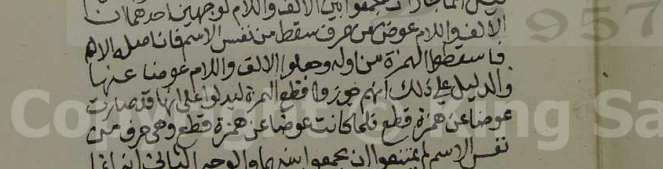 ان يجمعوا بين الالف واللام لوجهين احدهما ان
الالف واللام عوض عن حرف سقط من نفس الاسم فان اصله الاله
فاسقطوا الهمزة من اوله وجعلوا الالف واللام عوضا عنها
والدليل على ذلك انهم جوزوا قطع الهمزة ليدلوا على انها قد صارت
عوضا عن همزة قطع فلما كانت عوضا عن همزة قطع وهي حرف من
نفس الاسم لم يمتنعوا ان يجمعوا بينهما والوجه الثاني
957
Copyright King Sa